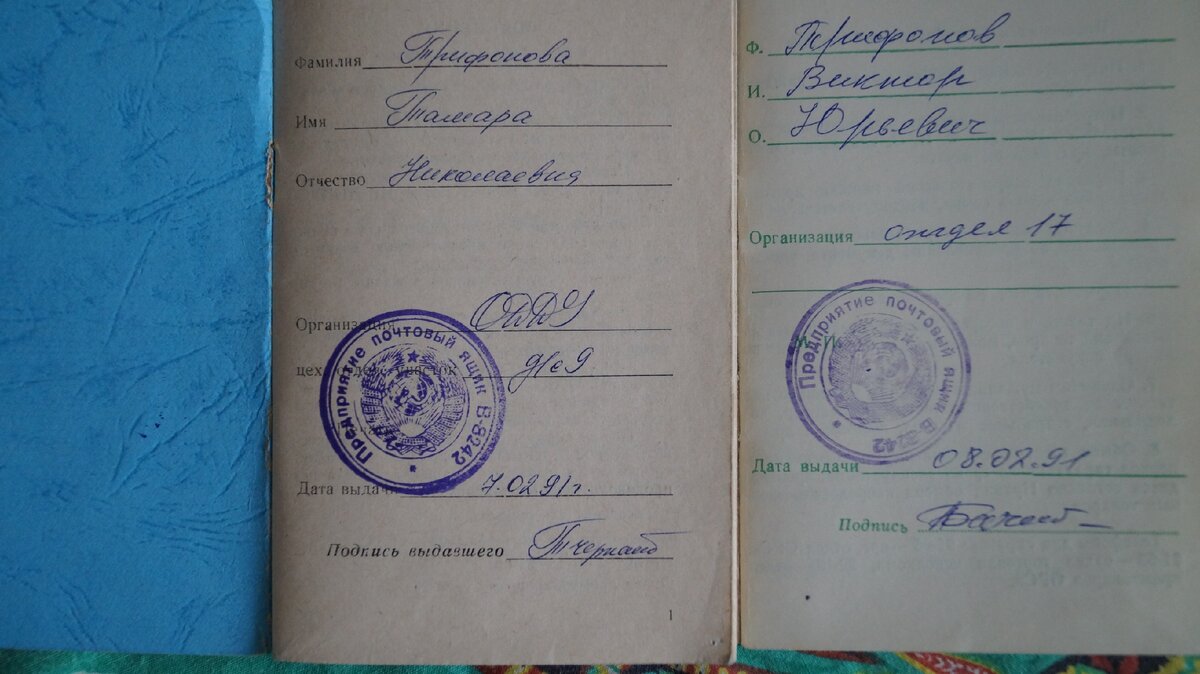 Фамилия Трифонова
Имя Тамара
Отчество Николаевна
Организация ОДДУ
цех, отдел, участок д/с 9
Предприятие почтовый ящик В-8242
Дата выдачи 7.02.91г.
Подпись выдавшего
1
Ф. Трифонов
И. Виктор
О. Юрьевич
Организация отдел 17
М. П.
Предприятие почтовый ящик В-8242
Дата выдачи 08.02.91
Подпись